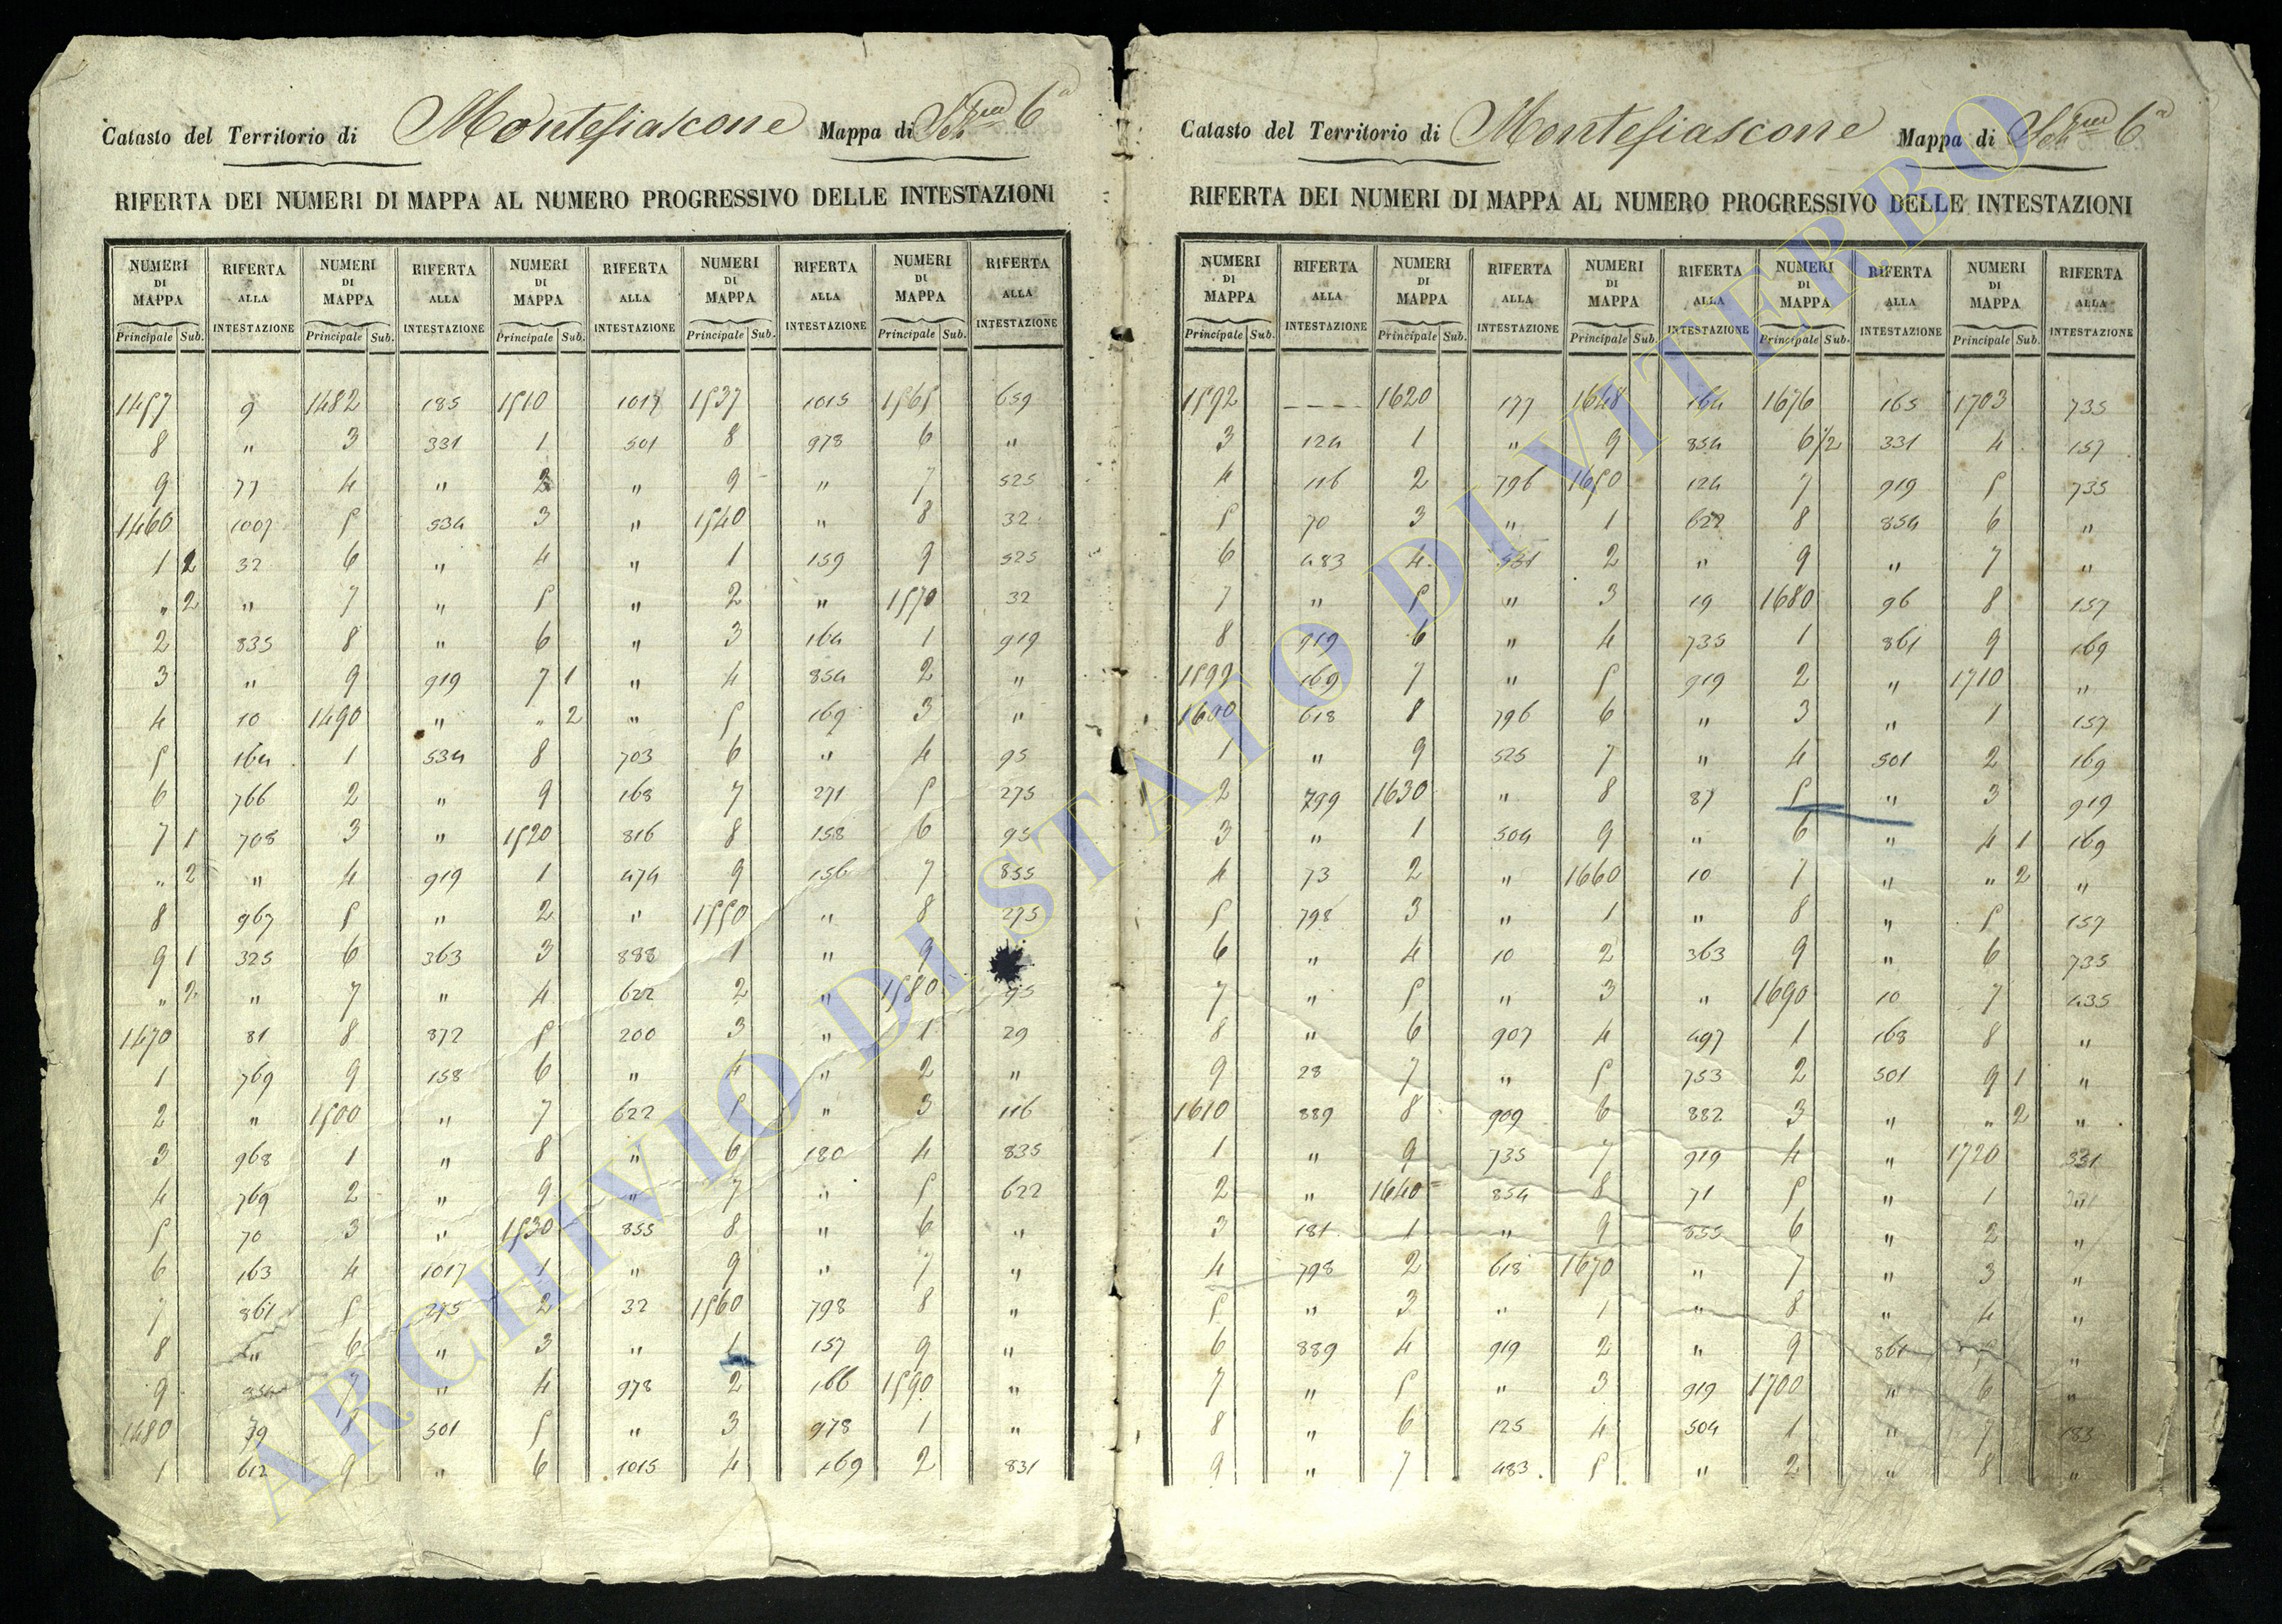 Catasto del Territorio di Montefiascone Mappa di Sez.ne 6a
RIFERTA DEI NUMERI DI MAPPA AL NUMERO PROGRESSIVO DELLE INTESTAZIONI
NUMERI DI MAPPA RIFERTA ALLA INTESTAZIONE NUMERI DI MAPPA RIFERTA ALLA INTESTAZIONE NUMERI DI MAPPA RIFERTA ALLA INTESTAZIONE NUMERI DI MAPPA RIFERTA ALLA INTESTAZIONE NUMERI DI MAPPA RIFERTA ALLA INTESTAZIONE
Principale Sub. Principale Sub. Principale Sub. Principale Sub. Principale Sub.
1457 9 1482 185 1510 1017 1537 1015 1565 659
8 " 3 331 1 501 8 978 6 "
9 77 4 " 2 " 9 " 7 525
1460 1007 5 534 3 " 1540 " 8 32
1 2 32 6 " 4 " 1 159 9 525
" 2 " 7 " 5 " 2 " 1570 32
2 835 8 " 6 " 3 164 1 919
3 " 9 919 7 1 " 4 854 2 "
4 10 1490 " " 2 " 5 169 3 "
5 164 1 534 8 703 6 " 4 95
6 766 2 " 9 168 7 271 5 275
7 1 708 3 " 1520 816 8 158 6 95
" 2 " 4 919 1 474 9 156 7 855
8 967 5 " 2 " 1550 " 8 275
9 1 325 6 363 3 888 1 " 9
" 2 " 7 " 4 622 2 " 1580 95
1470 81 8 872 5 200 3 " 1 29
1 769 9 158 6 " 4 " 2 "
2 " 1500 " 7 622 5 " 3 116
3 968 1 " 8 " 6 180 4 835
4 769 2 " 9 " 7 " 5 622
5 70 3 " 1530 855 8 " 6 "
6 163 4 1017 1 " 9 " 7 "
7 861 5 275 2 32 1560 798 8 "
8 " 6 " 3 " 1 157 9 "
9 854 7 " 4 978 2 166 1590 "
1480 39 8 501 5 " 3 978 1 "
1 612 9 " 6 1015 4 169 2 831
Catasto del Territorio di Montefiascone Mappa di Sez.ne 6a
RIFERTA DEI NUMERI DI MAPPA AL NUMERO PROGRESSIVO DELLE INTESTAZIONI
NUMERI DI MAPPA RIFERTA ALLA INTESTAZIONE NUMERI DI MAPPA RIFERTA ALLA INTESTAZIONE NUMERI DI MAPPA RIFERTA ALLA INTESTAZIONE NUMERI DI MAPPA RIFERTA ALLA INTESTAZIONE NUMERI DI MAPPA RIFERTA ALLA INTESTAZIONE
Principale Sub. Principale Sub. Principale Sub. Principale Sub. Principale Sub.
1592 ---- 1620 177 1648 164 1676 165 1703 735
3 124 1 " 9 854 6 1/2 331 4 157
4 116 2 796 1650 124 7 919 5 735
5 70 3 " 1 622 8 854 6 "
6 483 4 531 2 " 9 " 7 "
7 " 5 " 3 19 1680 96 8 157
8 919 6 " 4 735 1 861 9 169
1599 169 7 " 5 919 2 " 1710 "
1600 618 8 796 6 " 3 " 1 157
1 " 9 525 7 " 4 501 2 169
2 799 1630 " 8 87 5 " 3 919
3 " 1 504 9 " 6 " 4 1 169
4 73 2 " 1660 10 7 " " 2 "
5 798 3 " 1 " 8 " 5 157
6 " 4 10 2 363 9 " 6 735
7 " 5 " 3 " 1690 10 7 435
8 " 6 907 4 497 1 168 8 "
9 28 7 " 5 753 2 501 9 1 "
1610 889 8 909 6 882 3 " " 2 "
1 " 9 735 7 919 4 " 1720 331
2 " 1640 854 8 71 5 " 1 331
3 181 1 " 9 855 6 " 2 "
4 798 2 618 1670 " 7 " 3 "
5 " 3 " 1 " 8 " 4 "
6 889 4 919 2 " 9 861 "
7 " 5 " 3 919 1700 " 6 "
8 " 6 125 4 504 1 " 7 183
9 " 7 483 5 " 2 " 8 "
ARCHIVIO DI STATO DI VITERBO